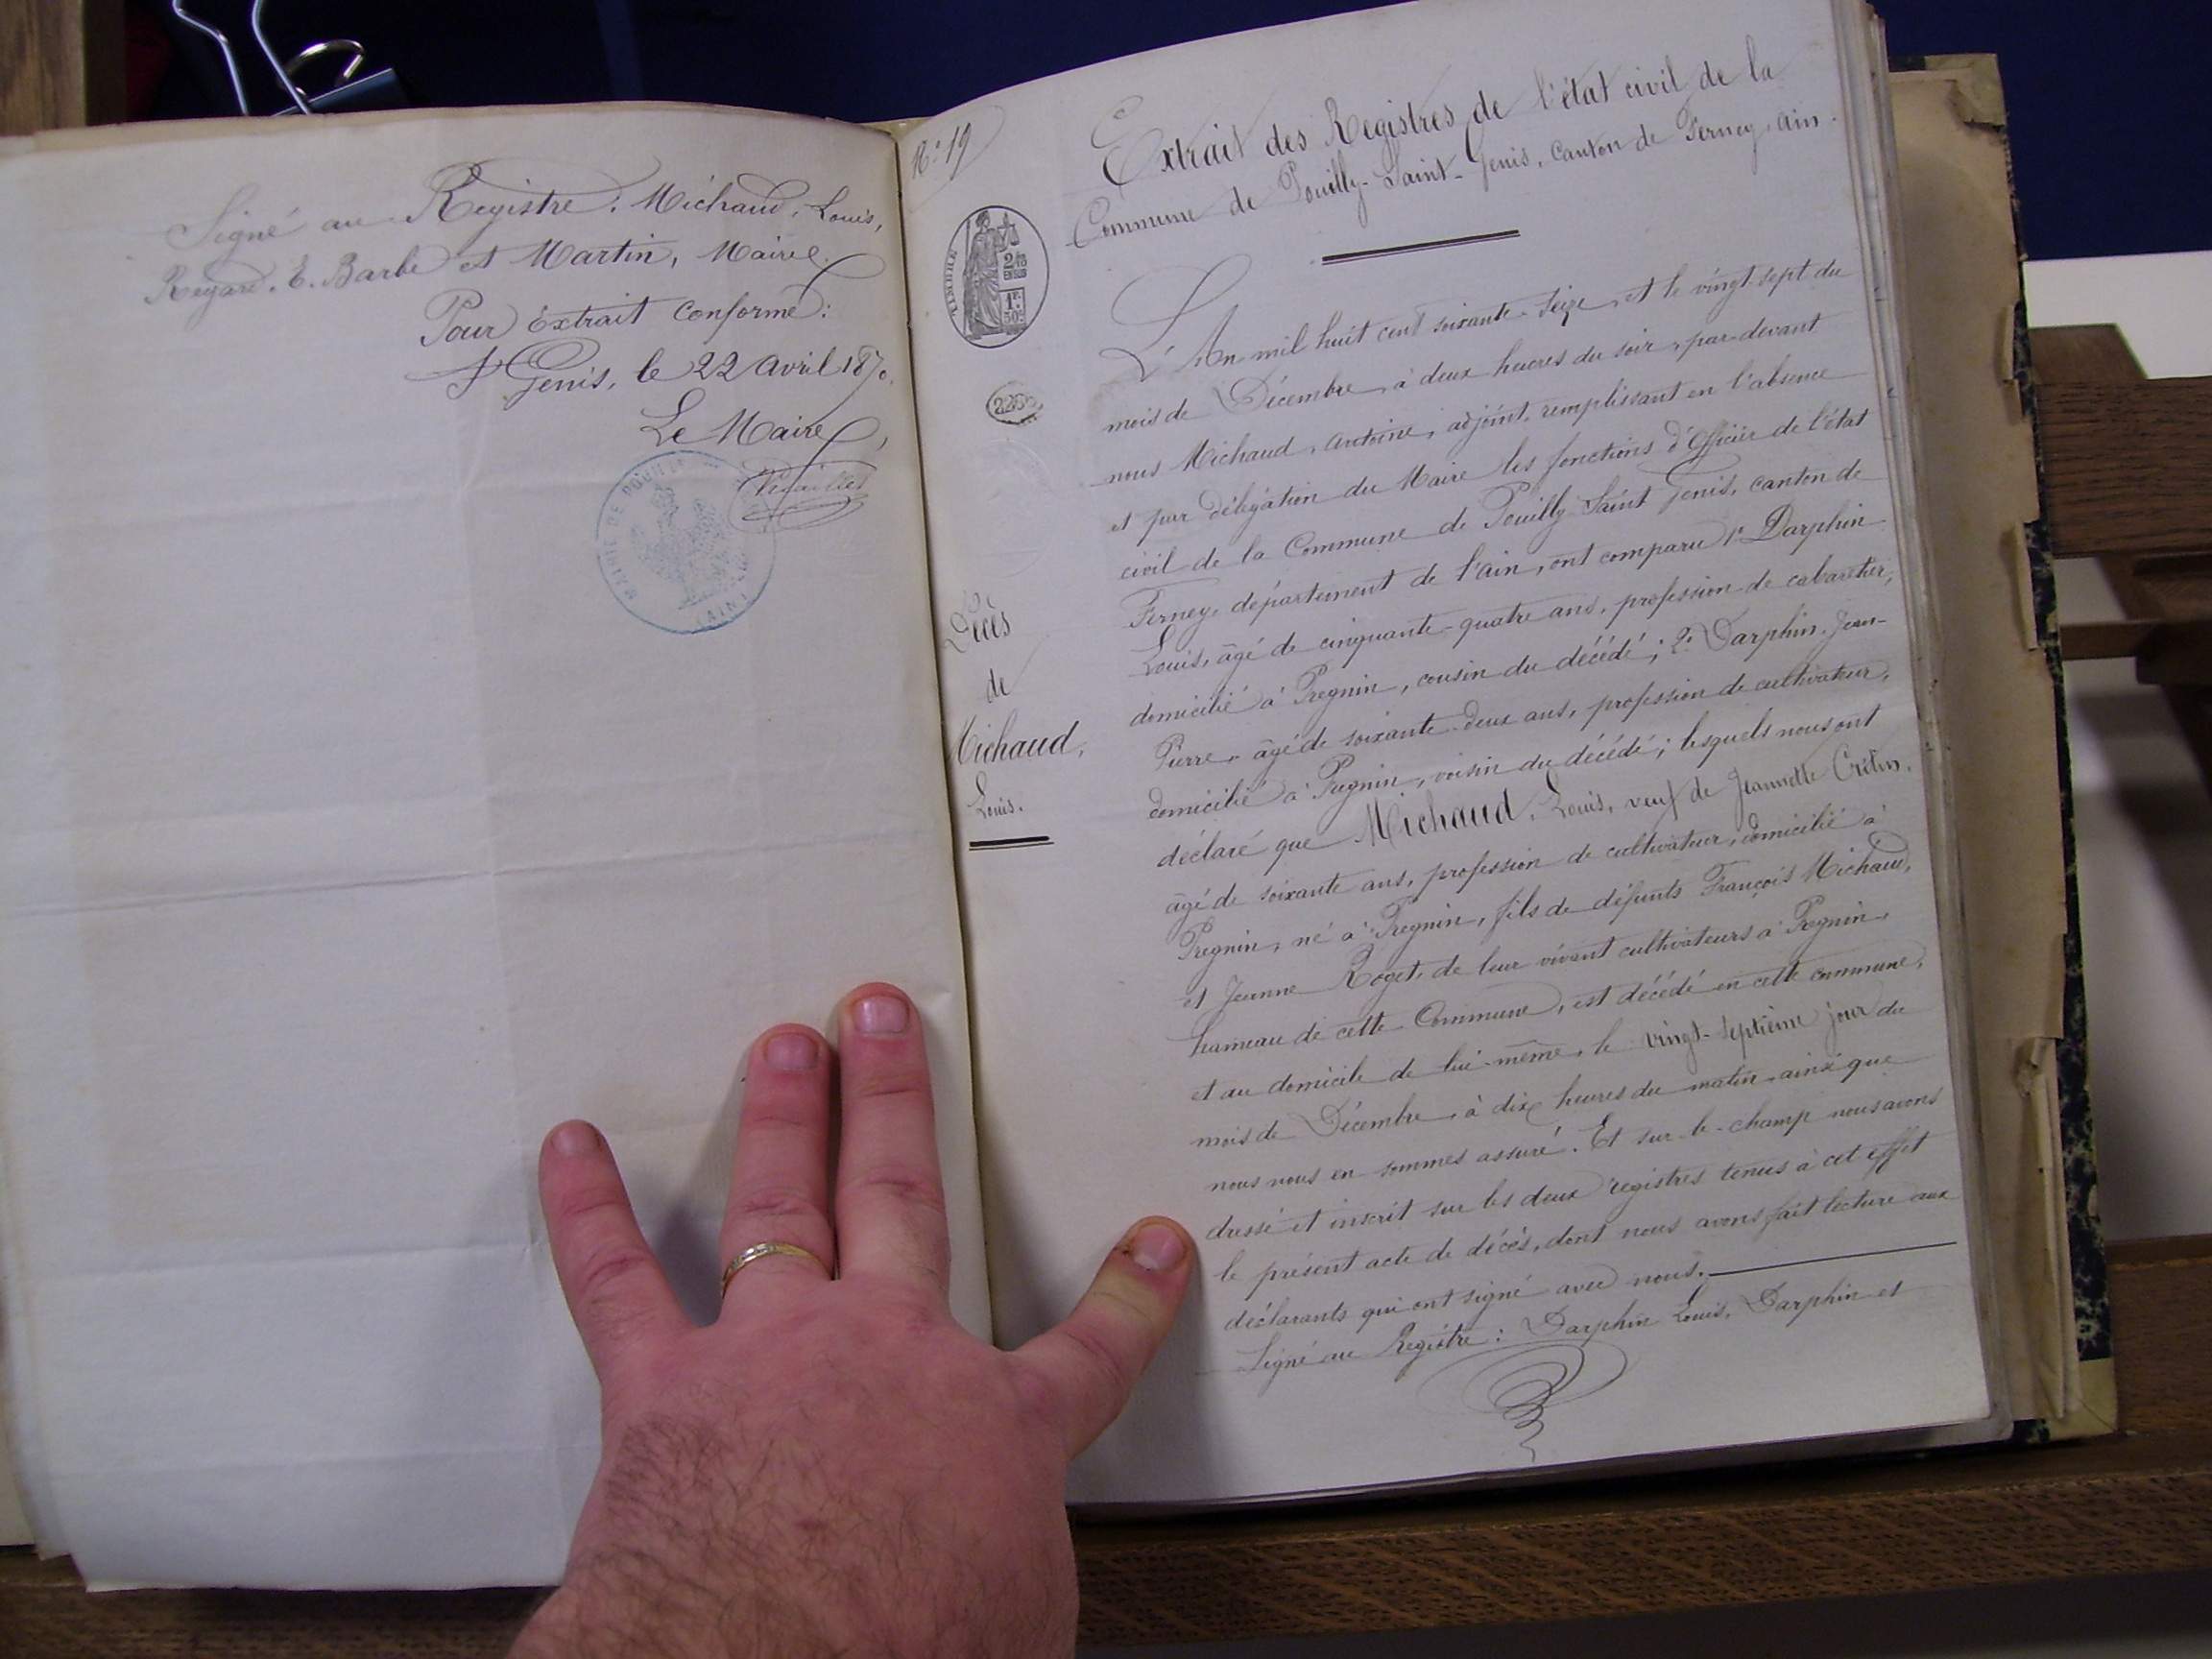 Signé au Registre. Michaud, Louis,
Regard. E. Barbe et Martin, Maire.
Pour Extrait conforme:
St Genis, le 22 Avril 187
Le Maire,
MAIRIE DE POUILLY
(AIN)
No. 19
Extrait des Registres de l'état civil de la
Commune de Pouilly-Saint-Genis, Canton de Ferney, Ain.
TIMBRE
2/10
EN SUS
1F.
50C
Décès
de
Michaud,
Louis.
L'An mil huit cent soixante-seize, et le vingt-sept du
mois de Décembre, à deux heures du soir, par-devant
nous Michaud, Antoine, adjoint, remplissant en l'absence
et par délégation du Maire les fonctions d'Officier de l'état
civil de la Commune de Pouilly-Saint-Genis, canton de
Ferney, département de l'ain, ont comparu 1° Darphin
Louis, âgé de cinquante-quatre ans, profession de cabaretier,
domicilié à Pregnin, cousin du décédé; 2° Darphin, Jean-
Pierre, âgé de soixante-deux ans, profession de cultivateur,
domicilié à Pregnin, voisin du décédé; lesquels nous ont
déclaré que Michaud, Louis, veuf de Jeannette Crétin,
âgé de soixante ans, profession de cultivateur, domicilié à
Pregnin, né à Pregnin, fils de défunts François Michaud,
et Jeanne Roget, de leur vivant cultivateurs à Pregnin,
hameau de cette Commune, est décédé en cette commune,
et au domicile de lui-même, le vingt-septième jour du
mois de Décembre, à dix heures du matin, ainsi que
nous nous en sommes assuré. Et sur-le-champ nous avons
dressé et inscrit sur les deux registres tenus à cet effet
le présent acte de décès, dont nous avons fait lecture aux
déclarants qui ont signé avec nous.
Signé au Registre: Darphin Louis, Darphin et